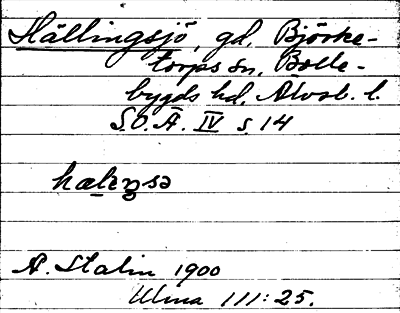 Hällingsjö, gd. Björke-
torps sn, Bolle-
bygds hd, Älvsb. l.
S.O.Ä. IV s. 14
A. Stalin 1900
Ulma 111:25.